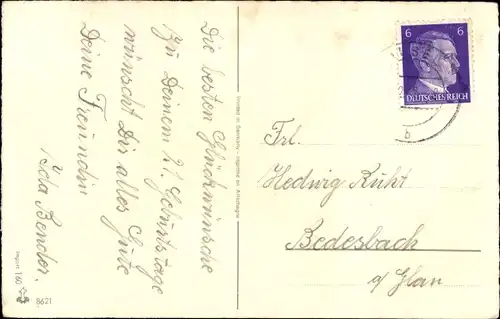 Die besten Glückwünsche
zu Deinem 21. Geburtstage
wünscht Dir alles Gute
Deine Freundin
Ida Bender.
6 6
DEUTSCHES REICH
b
Frl.
Hedwig Kuht
Bedesbach
a/Glan
Printed in Germany
Import 160
8621